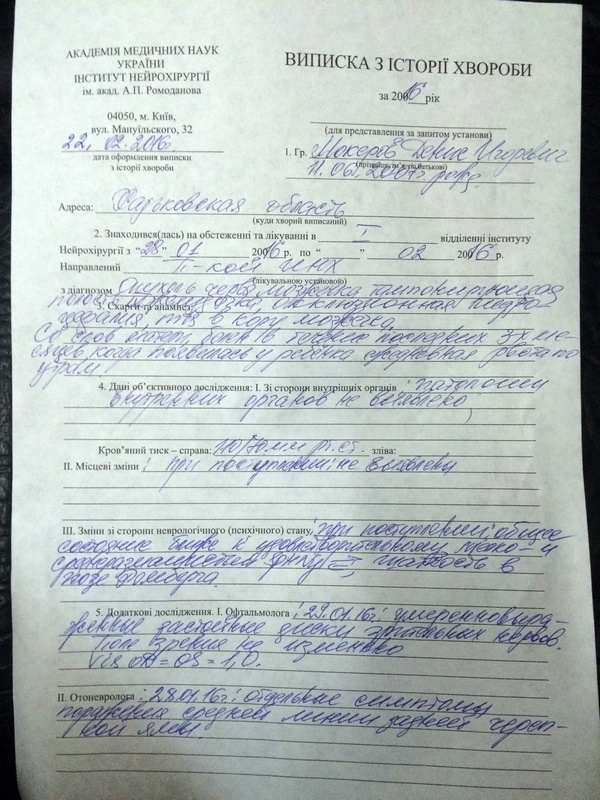 АКАДЕМІЯ МЕДИЧНИХ НАУК
УКРАЇНИ
ІНСТИТУТ НЕЙРОХІРУРГІЇ
ім. акад. А.П. Ромоданова
04050, м. Київ,
вул. Мануїльского, 32
22.02.2016.
дата оформлення виписки
з історії хвороби
ВИПИСКА З ІСТОРІЇ ХВОРОБИ
за 2016 рік
(для представлення за запитом установи)
1. Гр. Денис Игоревич
(прізвище, ім'я, по батькові)
Адреса: Харьковская область
(куди хворий виписаний)
2. Знаходився(лась) на обстеженні та лікуванні в I відділенні інституту
Нейрохірургії з "28" 01 2016 р. по " " 02 2016 р.
Направлений
(лікувальною установою)
з діагнозом Опухоль червя мозжечка тампонирующая
3. Скарги та анамнез: окклюзионная гидро-
Со слов матери, болен в течение последних 3-х ме-
сяцев, когда появилась у ребёнка ежедневная рвота по
утрам
4. Дані об'єктивного дослідження: I. Зі сторони внутрішніх органів : патологии
внутренних органов не выявлено
Кров'яний тиск – справа: 110/70 мм рт.ст. зліва:
II. Місцеві зміни : при поступлении: не выявлены
III. Зміни зі сторони неврологічного (психічного) стану при поступлении: общее
состояние ближе к удовлетворительному,
шаткость в
позе Ромберга.
5. Додаткові дослідження. I. Офтальмолога : 29.01.16г: умеренно выра-
женные застойные диски зрительных нервов.
Поле зрения не изменено
Vis OD = OS = 1,0.
II. Отоневролога : 28.01.16г: отдельные симптомы
поражения средней линии задней череп-
ной ямы